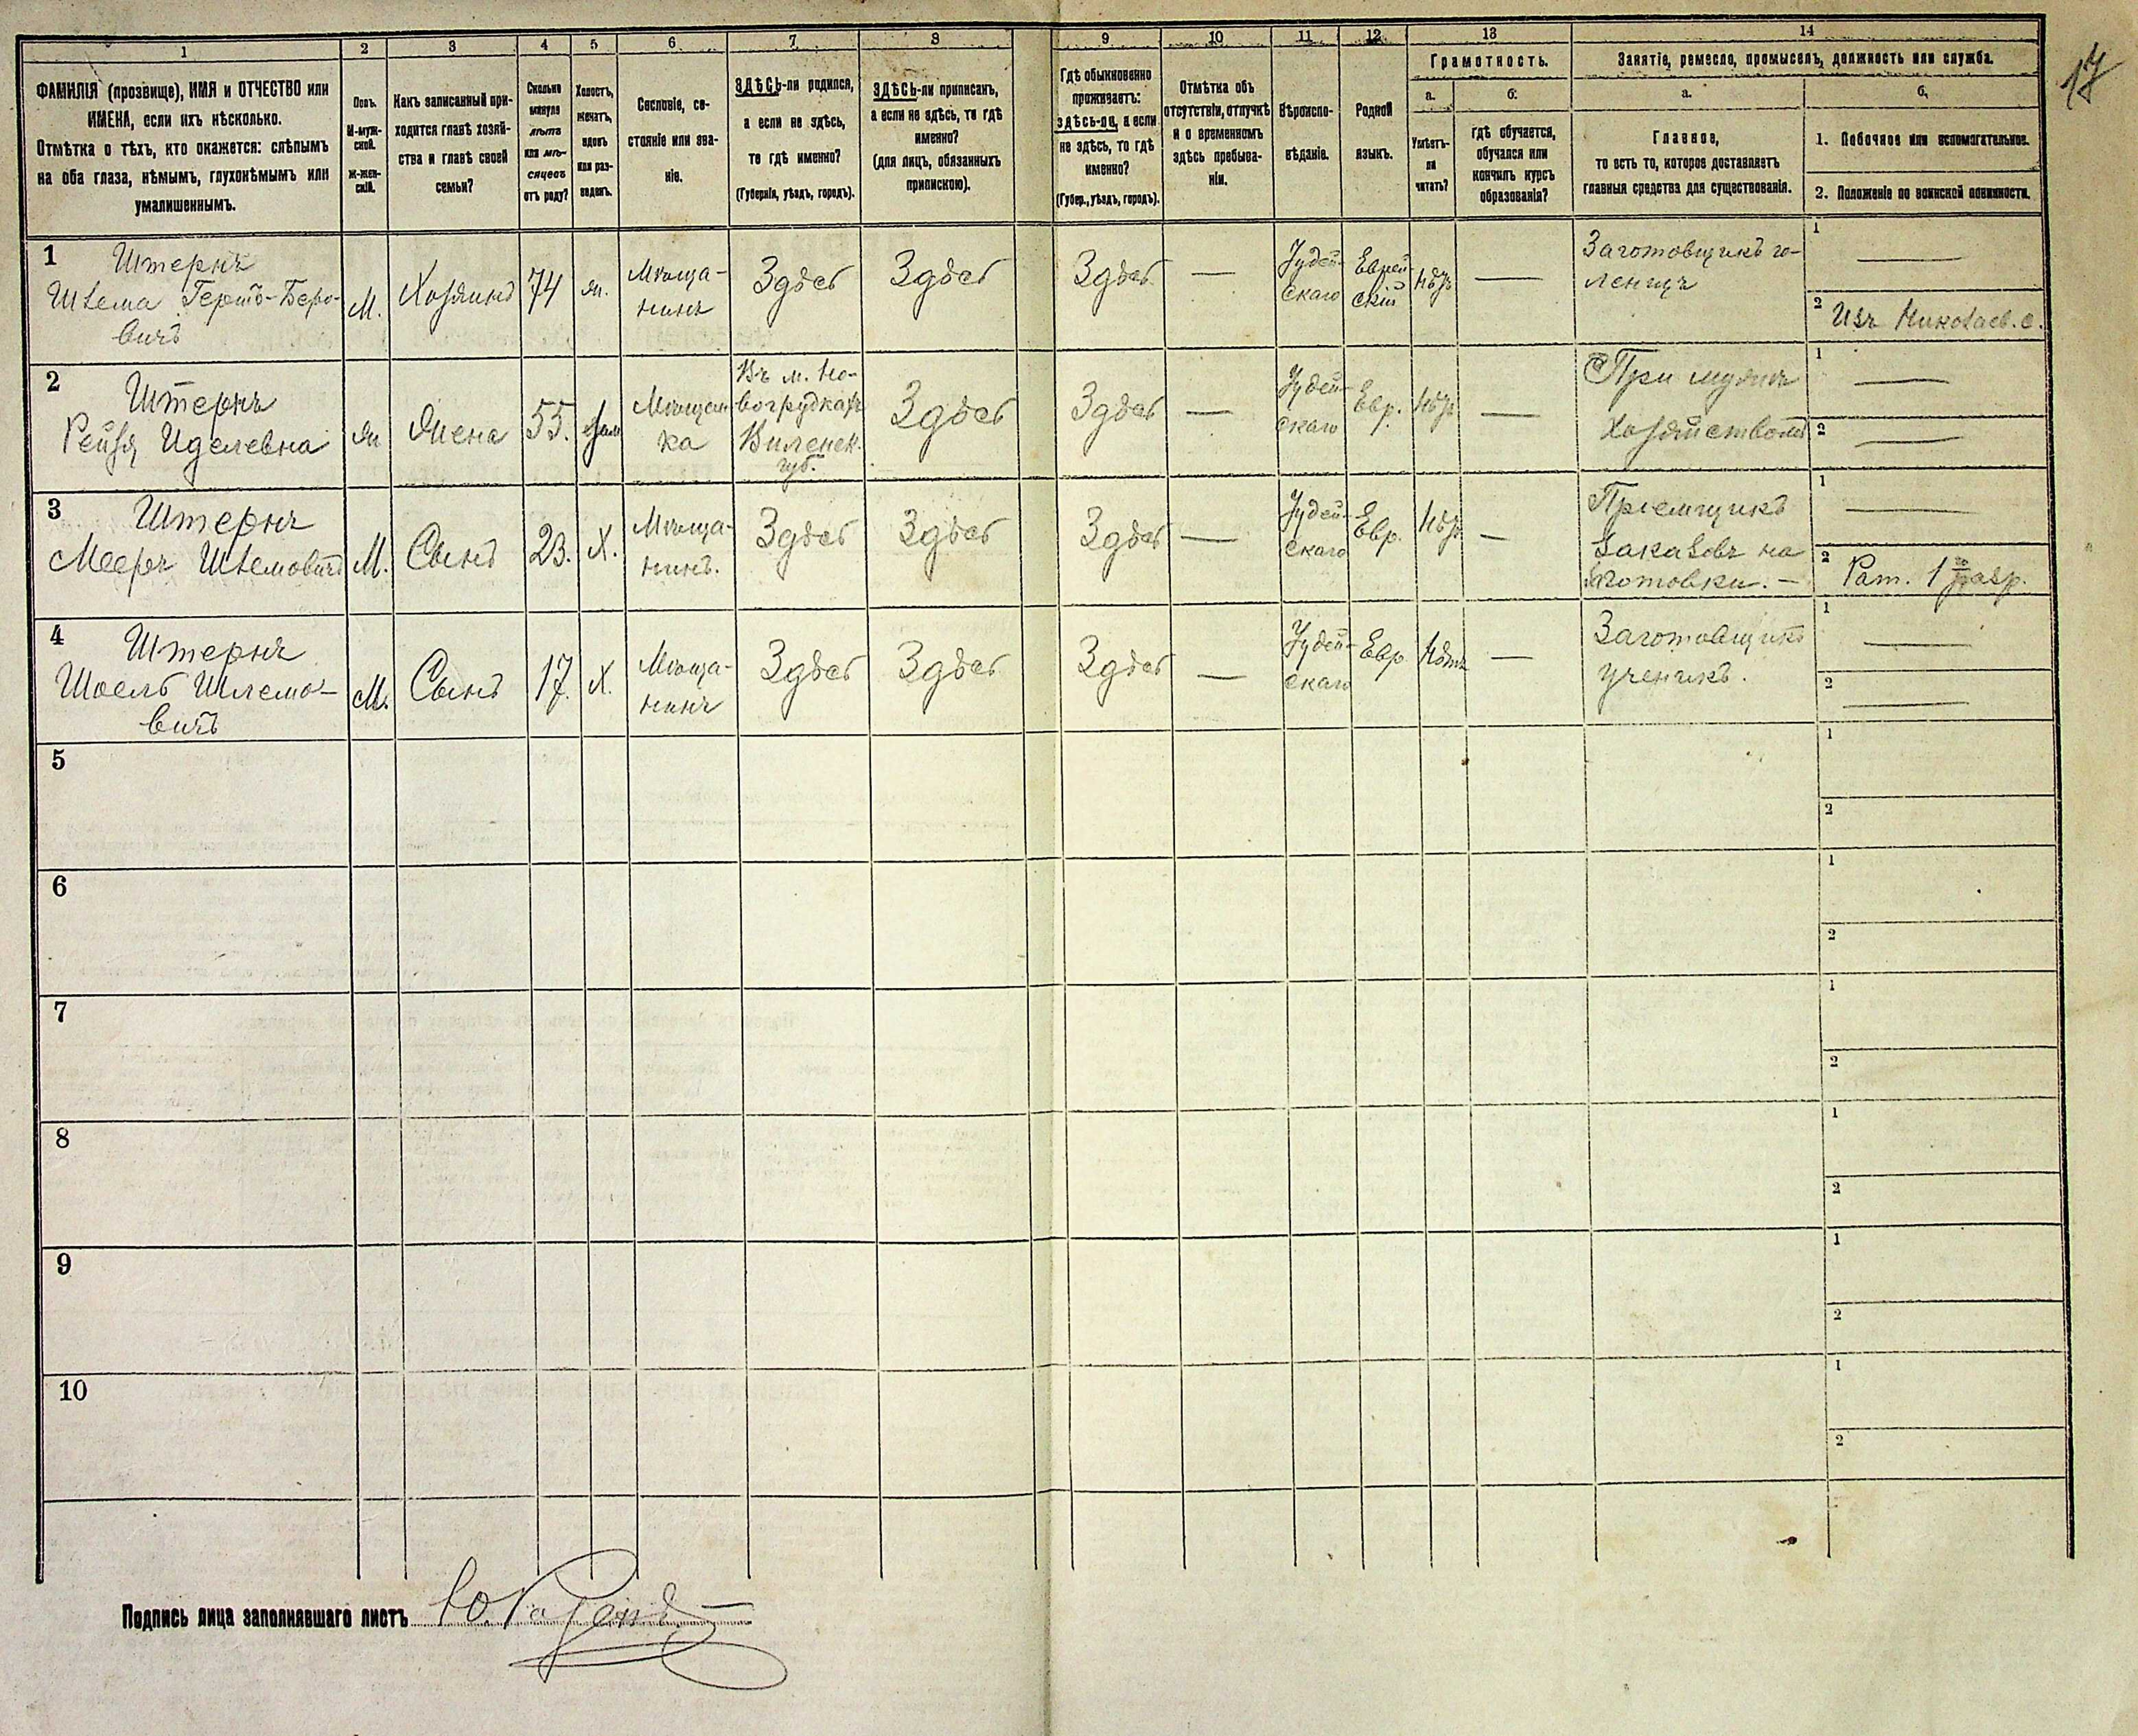 1 2 3 4 5 6 7 8 9 10 11 12 13 14
17
ФАМИЛІЯ (прозвище), ИМЯ и ОТЧЕСТВО или
ИМЕНА, если ихъ нѣсколько.
Отмѣтка о тѣхъ, кто окажется: слѣпымъ
на оба глаза, нѣмымъ, глухонѣмымъ или
умалишеннымъ.
Полъ.
М-муж-
ской.
Ж-жен-
скій.
Какъ записанный при-
ходится главѣ хозяй-
ства и главѣ своей
семьи?
Сколько
минуло
лѣтъ
или мѣ-
сяцевъ
отъ роду?
Холостъ,
женатъ,
вдовъ
или раз-
веденъ.
Сословіе, со-
стояніе или зва-
ніе.
ЗДѢСЬ-ли родился,
а если не здѣсь,
то гдѣ именно?
(Губернія, уѣздъ, городъ).
ЗДѢСЬ-ли приписанъ,
а если не здѣсь, то гдѣ
именно?
(для лицъ, обязанныхъ
припискою).
Гдѣ обыкновенно
проживаетъ:
здѣсь-ли, а если
не здѣсь, то гдѣ
именно?
(Губер., уѣздъ, городъ).
Отмѣтка объ
отсутствіи, отлучкѣ
и о временномъ
здѣсь пребыва-
ніи.
Вѣроиспо-
вѣданіе.
Родной
языкъ.
Грамотность.
а. б.
Умѣетъ-
ли
читать?
гдѣ обучается,
обучался или
кончилъ курсъ
образованія?
Занятіе, ремесло, промыселъ, должность или служба.
а. б.
Главное,
то есть то, которое доставляетъ
главныя средства для существованія.
1. Побочное или вспомагательное.
2. Положеніе по воинской повинности.
1
Штернъ
Шлема Герто-Беро-
вичъ
М.
Хозяинъ
74
Ж.
Мѣща-
нинъ
Здѣсь
Здѣсь
Здѣсь
—
Іудей-
скаго
Еврей-
скій
нѣтъ
—
Заготовщикъ го-
ленищъ
1 —
2 Изъ Николаев. с.
2
Штернъ
Рейзя Иделевна
Ж
Жена
55.
Зам
Мѣщан-
ка
Въ м. Но-
вогрудкахъ
Виленск.
губ.
Здѣсь
Здѣсь
—
Іудей-
скаго
Евр.
нѣтъ
—
При мужѣ
хозяйствомъ
1 —
2 —
3
Штернъ
Мееръ Шлемовичъ
М.
Сынъ
23.
Х.
Мѣща-
нинъ.
Здѣсь
Здѣсь
Здѣсь
—
Іудей-
скаго
Евр.
нѣтъ
—
Пріемщикъ
заказовъ на
заготовки. —
1 —
2 Рат. 1го разр.
4
Штернъ
Шоелъ Шлемо-
вичъ
М.
Сынъ
17.
Х.
Мѣща-
нинъ
Здѣсь
Здѣсь
Здѣсь
—
Іудей-
скаго
Евр
нѣтъ
—
Заготовщикъ
ученикъ.
1 —
2 —
5
1
2
6
1
2
7
1
2
8
1
2
9
1
2
10
1
2
Подпись лица заполнявшаго листъ